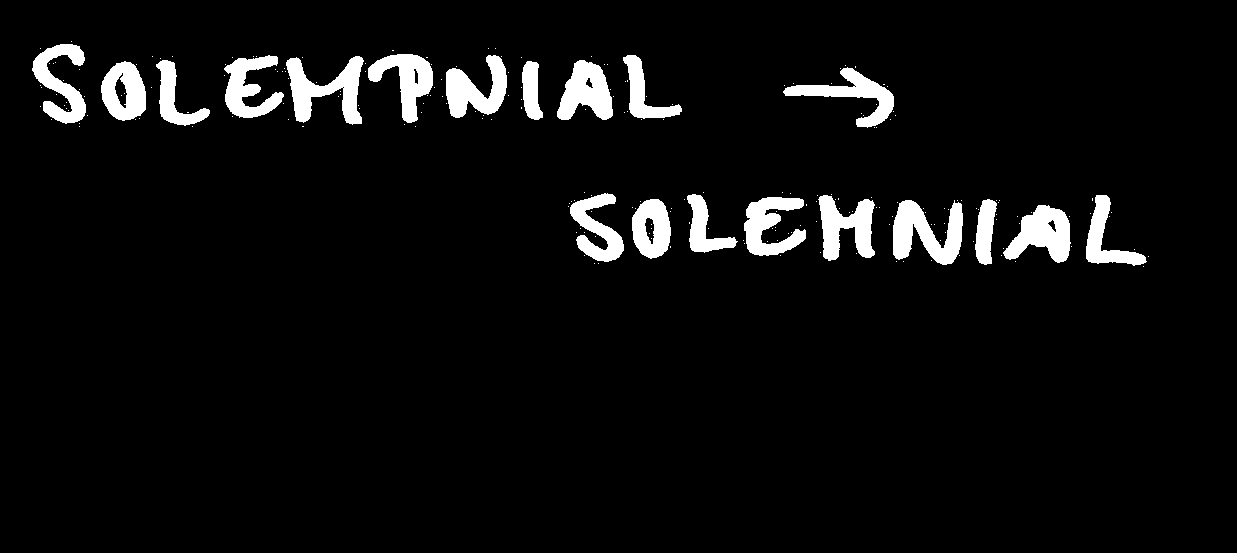 SOLEMPNIAL →
SOLEMNIAL